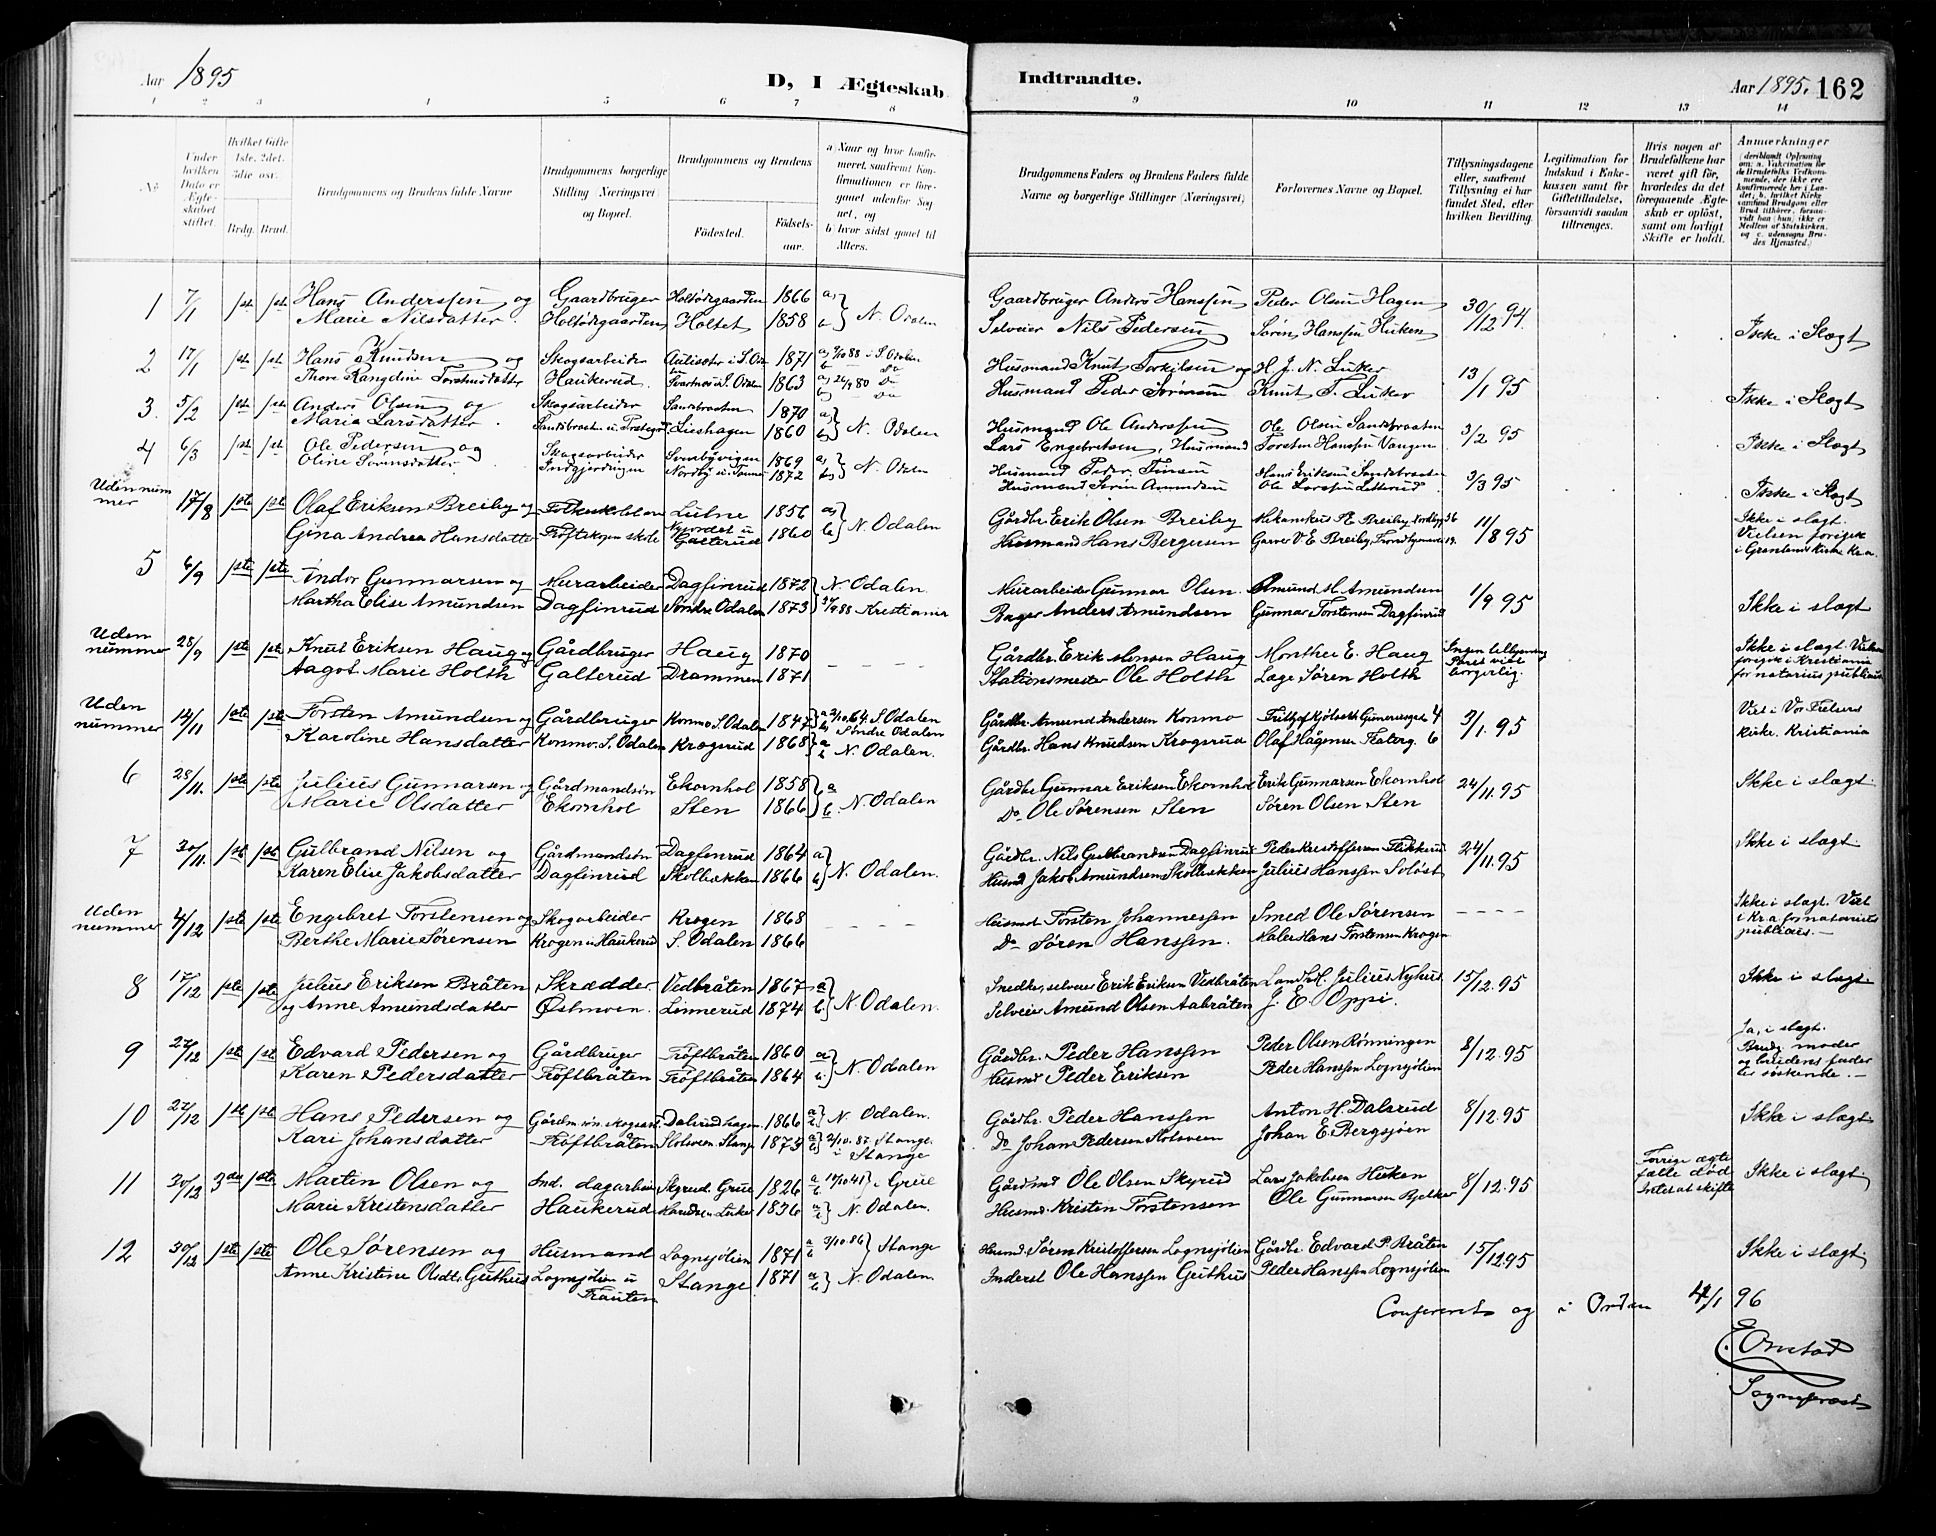 Aar 1895
D, I Ægteskab
Indtraadte.
Aar 1895. 162
1 2 3 4 5 6 7 8 9 10 11 12 13 14
No
Under hvilken Dato er Ægteskabet stiftet.
Hvilket Gifte 1ste, 2det, 3die osv.
Brdg. Brud.
Brudgommens og Brudens fulde Navne
Brudgommens borgerlige Stilling (Næringsvei) og Bopæl.
Brudgommens og Brudens
Fødested.
Fødselsaar.
a) Naar og hvor konfirmeret, saafremt Konfirmationen er foregaaet udenfor Sognet, og
b) hvor sidst gaaet til Alters.
Brudgommens Faders og Brudens Faders fulde Navne og borgerlige Stillinger (Næringsvei)
Forlovernes Navne og Bopæl.
Tillysningsdagene eller, saafremt Tillysning ei har fundet Sted, efter hvilken Bevilling.
Legitimation for Indskud i Enkekassen samt for Giftetilladelse, forsaavidt saadan tiltrænges.
Hvis nogen af Brudefolkene har været gift før, hvorledes da det foregaaende Ægteskab er opløst, samt om lovligt Skifte er holdt.
Anmærkninger
1 7/1 1ste 1ste Hans Anderssen og Gaardbruger Holtödegaarden 1866 a) N. Odalen Gaardbruger Anders Hanssen Peder Olsen Hagen 30/12 94 Ikke i Slægt
Marie Nilsdatter Holtödegaarden Holtet 1858 b) Selveier Nils Pedersen Søren Hanssen Huken
2 17/1 1ste 1ste Hans Knudsen og Skogsarbeider 1871 a) 9/10 88 i S. Odalen Husmand Knut Torkilsen og H. J. N. Lucker 13/1 95 Ikke i Slægt
Thore Rangdine Torstensdatter Haukerud 1863 Husmand Peder Sørensen Knut T. Lucker
3. 5/2 1ste 1ste Anders Olsen og Skogsarbeider Sandsbraaten 1870 a) N. Odalen Husmand Ole Anderssen Ole Olsen Sandsbraaten 3/2 95 Ikke i Slægt
Maria Larsdatter Lieshagen 1860 b) Lars Engebretsen, Husmand Torsten Hanssen Vangen
4 6/3 1ste 1ste Ole Pedersen og Skogsarbeider Svenbyvigen 1869 a) N. Odalen Husmand Peder Finsen Hans Eriksen Sandsbraaten 3/3 95 Ikke i Slægt
Oline Sørensdatter Indgjerdingen 1872 b) Husmand Søren Amundsen Ole Larssen Letterud
Uden nummer 17/8 1ste 1ste Olaf Eriksen Breiby og Lutne 1856 a) N. Odalen Gårdbr. Erik Olsen Breiby 11/8 95 Ikke i slægt. Vielsen foregik i Grønlands kirke Kr.a.
Gina Andrea Hansdatter Trøftskogen skole Galterud 1860 b Husmand Hans Bergersen
5 6/9 1ste 1ste Indor Gunnarsen og Murarbeider Dagfinrud 1872 N. Odalen. Murarbeider Gunnar Olsen. Amund H. Amundsen 1/9 95 Ikke i slægt
Martha Elise Amundsen Dagfinrud Søndre Odalen 1873 88 Kristiania Bager Anders Amundsen Gunnar Torstensen Dagfinrud
Uden nummer 28/9 1ste 1ste Knut Eriksen Haug og Gårdbruger Haug 1870 - - - - Gårdbr. Erik Monsen Haug Monthei E. Haug Ingen tillysning Paret viet borgerlig. Ikke i slægt. Vielsen foregik i Kristiania for notarius publicus
Aagot Marie Holth Galterud Drammen 1871 Stationsmester Ole Holth Læge Søren Holth
Uden nummer 14/11 1ste 1ste Torsten Amundsen og Gårdbruger Konmo S. Odalen 1847 a 2/10 64 S. Odalen b Søndre Odalen Gårdbr. Amund Andersen Konmo 3/1. 95 Viet i Vor Frelsers kirke. Kristiania
Karoline Hansdatter Konmo. S. Odalen Krogsrud 1868 a b N. Odalen. Gårdbr. Hans Knudsen Krogsrud Olaf Hågensen Teaterg. 6
6 28/11. 1ste 1ste Julius Gunnarsen og Gårdmandsøn Ekornhol 1858 a N. Odalen Gårdbr. Gunnar Eriksen Ekornhol Erik Gunnarsen Ekornhol 24/11. 95 Ikke i slægt.
Marie Olsdatter Ekornhol Sten 1866 b Do Ole Sørensen Sten Søren Olsen Sten
7 30/11. 1ste 1ste Gulbrand Nilsen og Gårdmandsøn Dagfinrud 1864 a N. Odalen. Gårdbr. Nils Gulbrandsen Dagfinrud Peder Kristoffersen Flikkerud 24/11. 95 Ikke i slægt.
Karen Elise Jakobsdatter Dagfinrud Skolbækken 1866 b Husmd Jakob Amundsen Skolbækken Julius Hanssen Soløst
Uden nummer 4/12 1ste 1ste Engebret Torstensen og Skogarbeider Krogen 1868 - - - - Husmd Torsten Johannessen Smed Ole Sørensen - - - - Ikke i slægt. Viet i Kr.a for notarius publicus. -
Berthe Marie Sørensen Krogen u. Haukerud S. Odalen 1866 Do Søren Hanssen. Maler Hans Torstensen Krogen
8 17/12 1ste 1ste Julius Eriksen Bråten Skrædder. Vedbråten 1867 a N. Odalen. Snedker, selveier Erik Eriksen Vedbråten Landh. Julius Nyhus 15/12. 95 Ikke i slægt.
og Anne Amundsdatter Østmoen. Lennerud 1874 b Selveier Amund Olsen Aabråten J. E. Oppi.
9 27/12 1ste 1ste Edvard Pedersen og Gårdbruger Trøftbråten 1860 a N. Odalen Gårdbr. Peder Hanssen Peder Olsen Rønningen 8/12. 95 Ja, i slægt. Brudg. moder og brudens fader er søskende. -
Karen Pedersdatter Trøftbråten Trøftbråten 1864 b Husmd Peder Eriksen Peder Hanssen Lognsjølien
10 27/12 1ste 1ste Hans Pedersen og 1866 a b N. Odalen. Gårdbr. Peder Hanssen Anton H. Dalsrud 8/12. 95 Ikke i slægt
Kari Johansdatter Trøftbråten Stange 1873 a 2/10. 87. Stange. b i Stange Do Johan Pedersen Holsveen Johan E. Bergsjøen
11 30/12 3die 1ste Martin Olsen og Ind. dagarbeider Skyrud. Grue 1826 a b 17/10 41 i Grue Gårdmd Ole Olsen Skyrud Lars Jakobsen Huken 8/12. 95 Forrige ægtefælle død Intet at skifte Ikke i slægt.
Marie Kristensdatter Haukerud 1836 a b N. Odalen. Husmd. Kristen Torstensen Ole Gunnarsen Bjelker
12 30/12 1ste 1ste Ole Sørensen og Husmand Lognsjølien 1871 a b 3/10. 86 Stange Husmd. Søren Kristoffersen Lognsjølien Gårdbr. Edvard P. Bråten 15/12. 95 Ikke i slægt.
Anne Kristine Olsdtr. Guthus Lognsjølien u Trauten Stange 1871 a b N. Odalen Inderst Ole Hanssen Guthus Peder Hanssen Lognsjølien
Confereret og i Orden 4/1 96
E. Onstad
Sogneprest